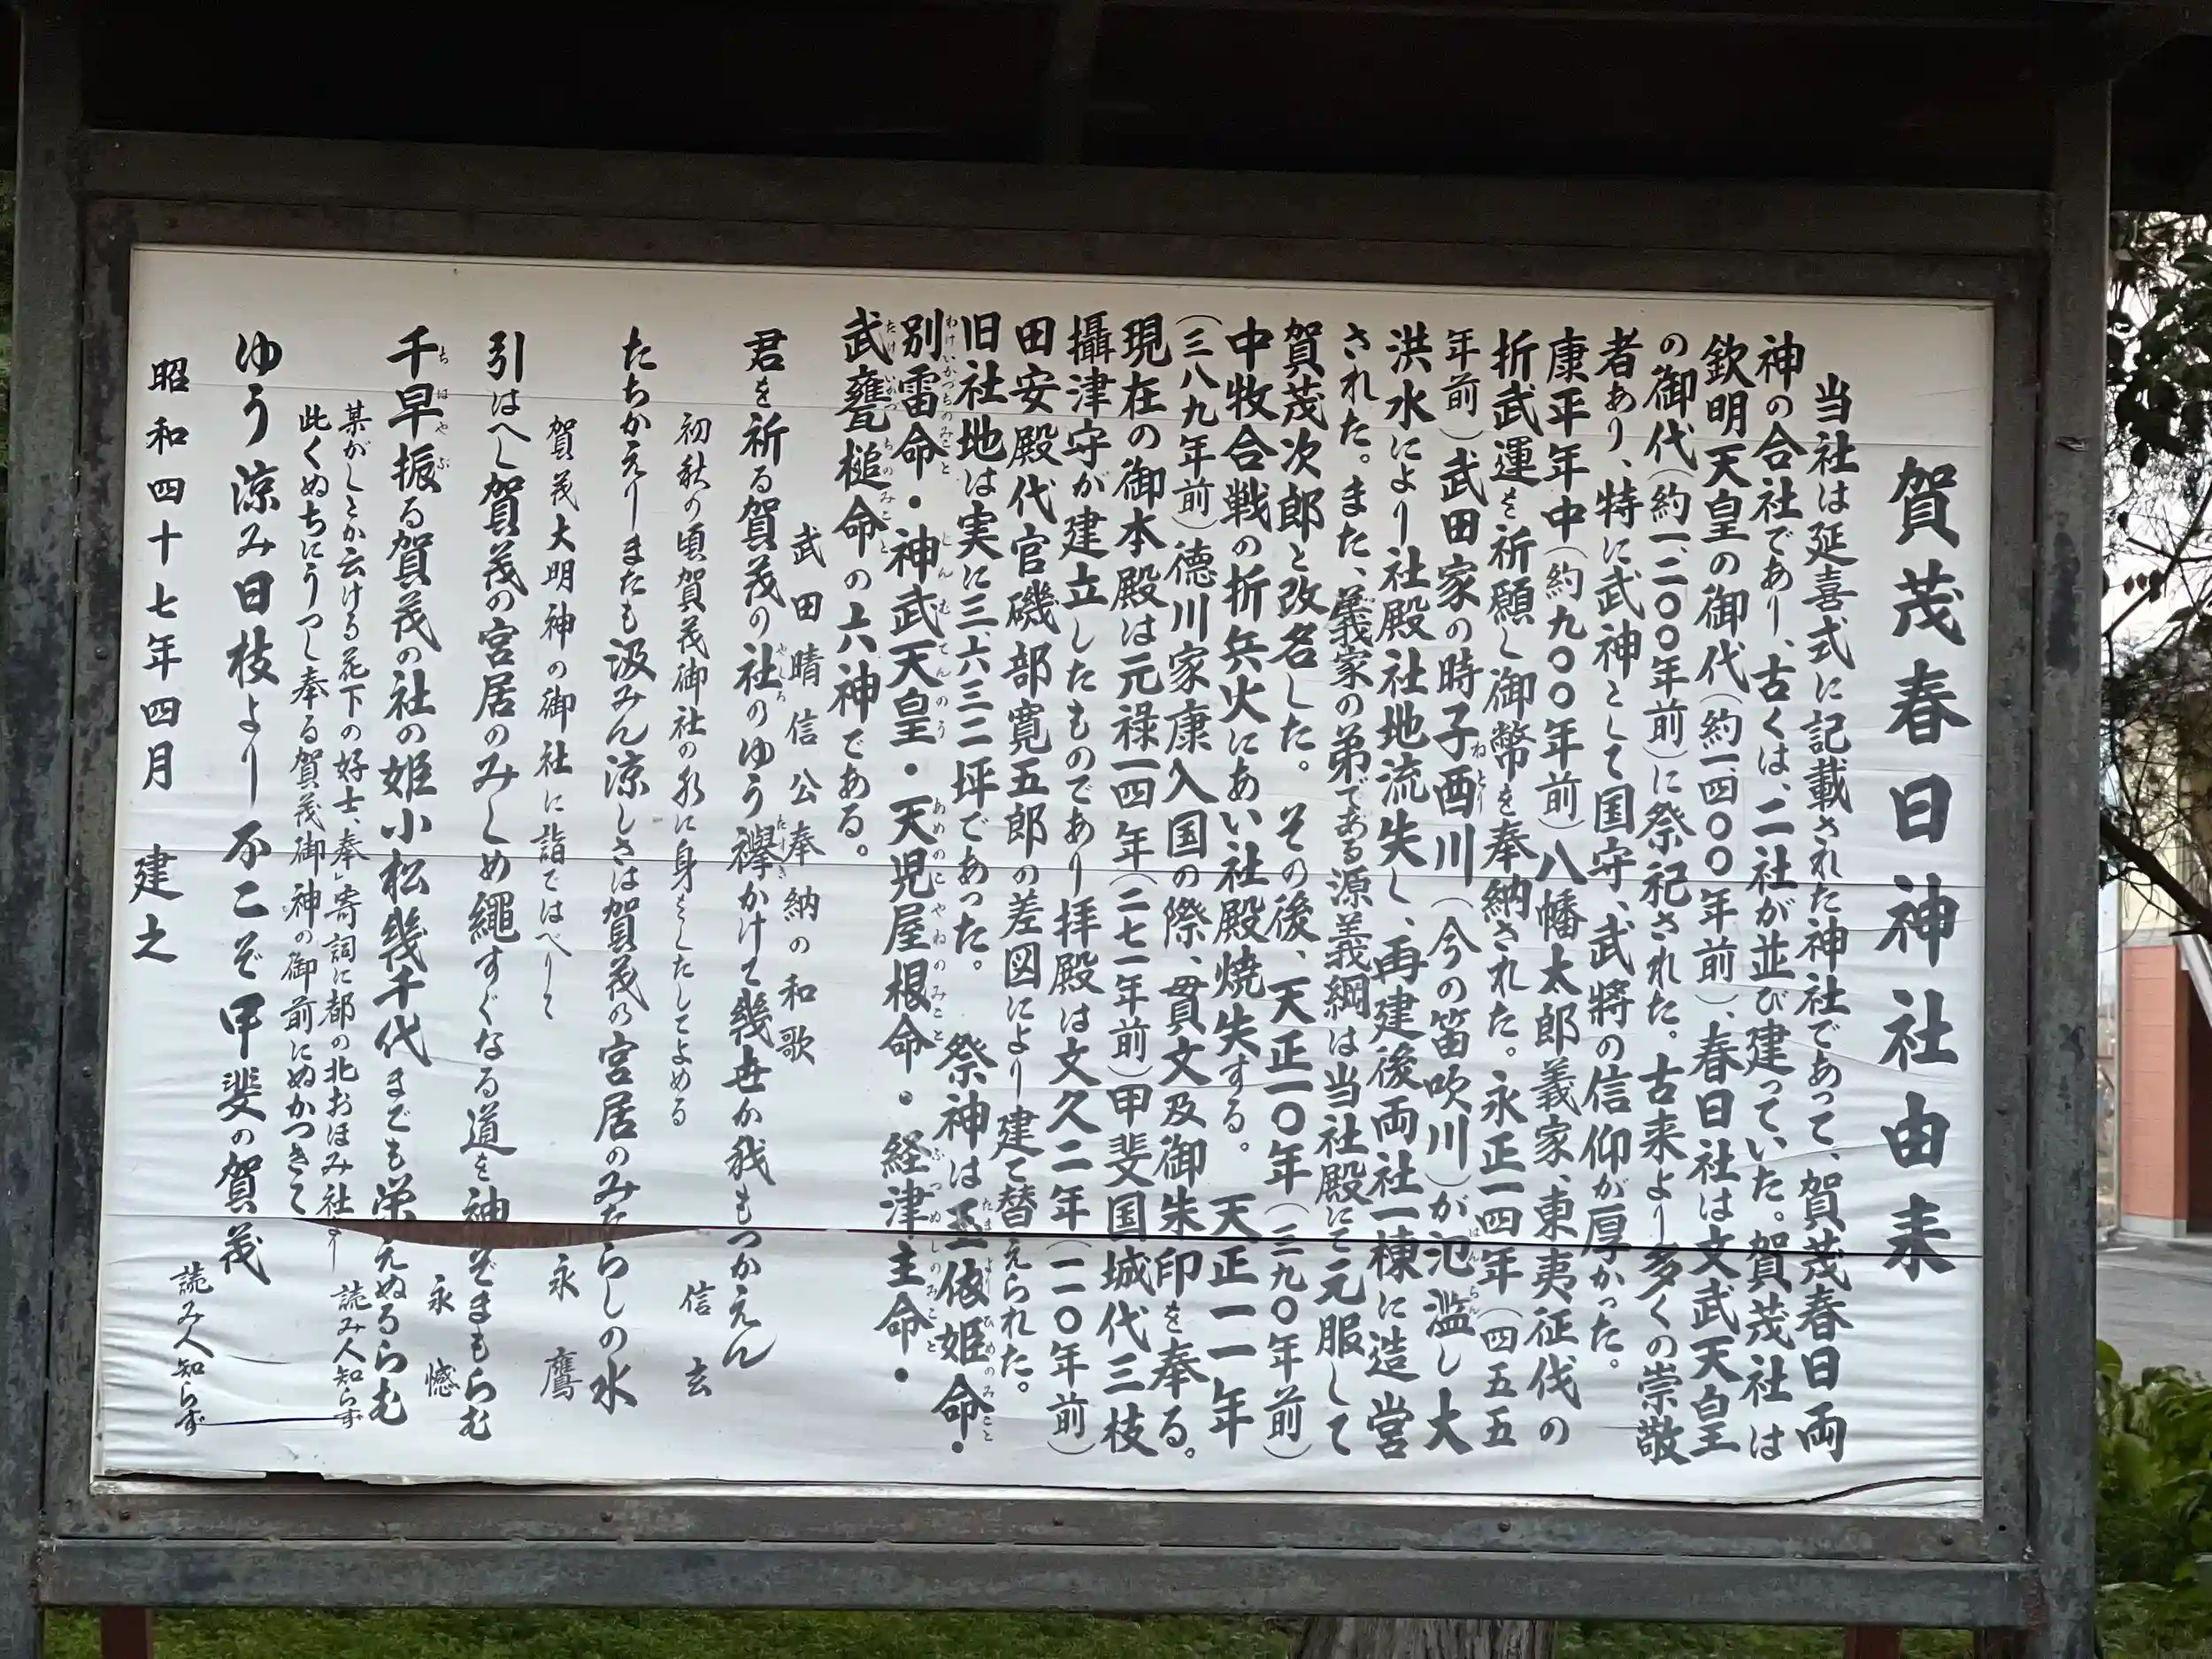 賀茂春日神社由来
当社は延喜式に記載された神社であって、賀茂春日両
神の合社であり、古くは、二社が並び建っていた。賀茂社は
欽明天皇の御代(約一、四〇〇年前)、春日社は文武天皇
の御代(約一、二〇〇年前)に祭祀された。古来より多くの崇敬
者あり、特に武神として国守、武将の信仰が厚かった。
康平年中(約九〇〇年前)八幡太郎義家、東夷征伐の
折武運を祈願し御幣を奉納された。永正一四年(四五五
年前)武田家の時子酉川(今の笛吹川)が氾濫し大
洪水により社殿社地流失し、再建後両社一棟に造営
された。また、義家の弟である源義綱は当社殿にて元服して
賀茂次郎と改名した。その後、天正一〇年(三九〇年前)
中牧合戦の折兵火にあい社殿焼失する。天正一一年
(三八九年前)徳川家康入国の際、貫文及御朱印を奉る。
現在の御本殿は元禄一四年(二七一年前)甲斐国城代三枝
攝津守が建立したものであり拝殿は文久二年(一一〇年前)
田安殿代官磯部寛五郎の差図により建て替えられた。
旧社地は実に三、六三二坪であった。祭神は玉依姫命・
別雷命・神武天皇・天児屋根命・経津主命・
武甕槌命の六神である。
武田晴信公奉納の和歌
君を祈る賀茂の社のゆう襷かけて幾世か我もつかえん
信玄
初秋の頃賀茂御社の水に身をしたしてよめる
たちかえりまたも汲みん涼しさは賀茂の宮居のみたらしの水
永鷹
賀茂大明神の御社に詣ではべりて
引はへし賀茂の宮居のみしめ縄すぐなる道を神ぞまもらむ
永憾
千早振る賀茂の社の姫小松幾千代までも栄えぬるらむ
読み人知らず
某がしとか云ける花下の好士、奉寄詞に都の北おほみ社より
此くぬちにうつし奉る賀茂御神の御前にぬかつきて
ゆう涼み日枝より不こそ甲斐の賀茂
読み人知らず
昭和四十七年四月 建之